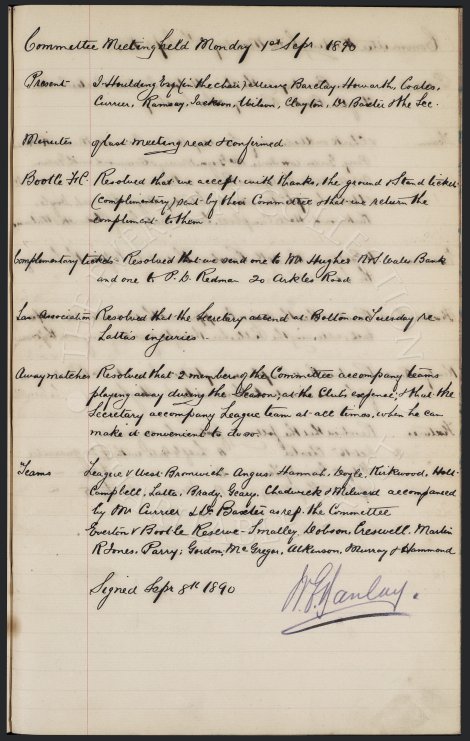 Committee Meeting held Monday 1st Sepr 1890
Present J. Houlding Esq (in the chair) Messrs Barclay, Howarth, Coates,
Currier, Ramsay, Jackson, Wilson, Clayton, Dr Baxter & the Sec.
Minutes of last meeting read & confirmed
Bootle F.C. Resolved that we accept with thanks, the ground & Stand ticket
(complimentary) sent by their Committee & that we return the
compliment to them
Complimentary tickets Resolved that we send one to Mr Hughes N & S Wales Bank
and one to P. D. Redman 20 Arkles Road
Lan. Association Resolved that the Secretary attend at Bolton on Tuesday re
Latta's injuries.
Away matches Resolved that 2 members of the Committee accompany teams
playing away during the Season, at the Clubs expense, & that the
Secretary accompany League team at all times, when he can
make it convenient to do so.
Teams League v West Bromwich - Angus, Hannah, Doyle, Kirkwood, Holt
Campbell, Latta, Brady, Geary, Chadwick & Milward accompanied
by Mr Currier & Dr Baxter as rep. the Committee
Everton v Bootle Reserve - Smalley, Dobson, Creswell, Martin
R Jones, Parry, Gordon, McGregor, Atkinson, Murray & Hammond
Signed Sepr 8th 1890